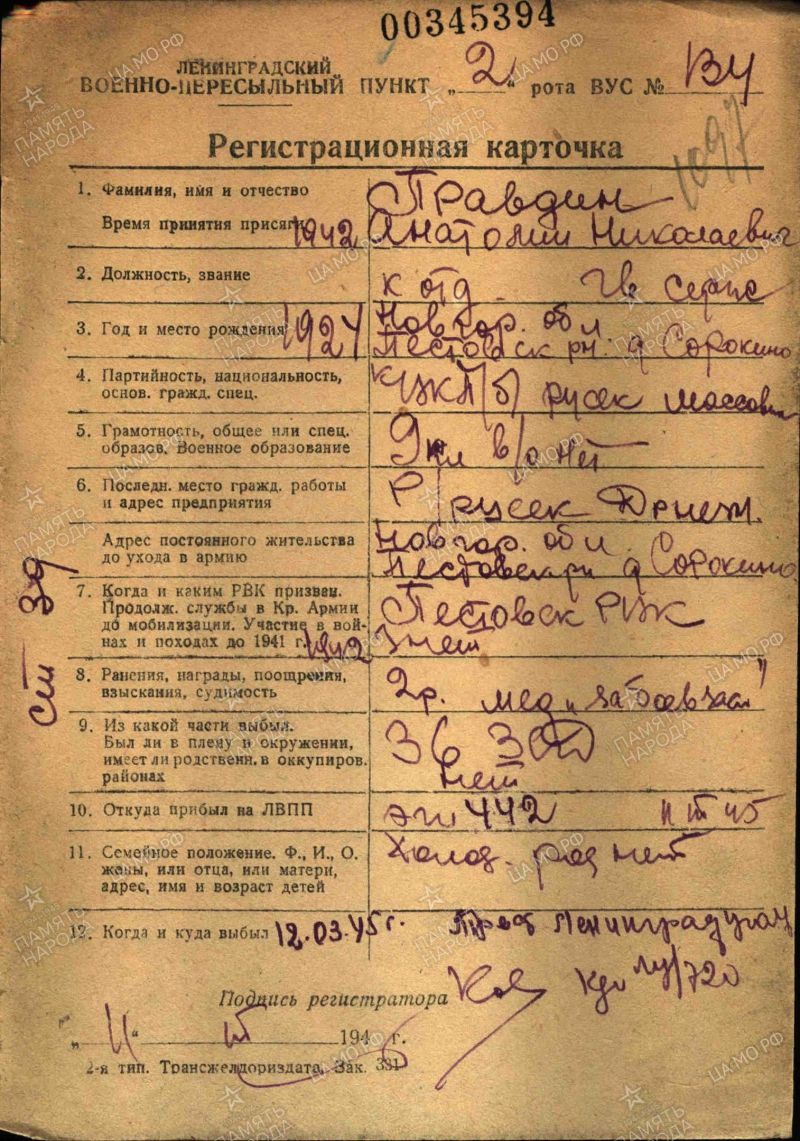 00345394
ЛЕНИНГРАДСКИЙ
ВОЕННО-ПЕРЕСЫЛЬНЫЙ ПУНКТ „2“ рота ВУС №
1097
Регистрационная карточка
1. Фамилия, имя и отчество Правдин
Время принятия присяги 1942 Анатолий Николаевич
2. Должность, звание к отд. гв серж
3. Год и место рождения 1924 Новгор. обл
Пестовск рн. д Сорокино
4. Партийность, национальность,
основ. гражд. спец.
б/ русск
5. Грамотность, общее или спец.
образов. Военное образование
9 кл в/о нет
6. Последн. место гражд. работы
и адрес предприятия
Адрес постоянного жительства
до ухода в армию
Новгор. обл.
д Сорокино
7. Когда и каким РВК призван.
Продолж. службы в Кр. Армии
до мобилизации. Участие в вой-
нах и походах до 1941 г. 1942
Пестовск РВК
нет
8. Ранения, награды, поощрения,
взыскания, судимость
2р. мед „за боев засл"
9. Из какой части выбыл.
Был ли в плену и окружении,
имеет ли родственн. в оккупиров.
районах
36
нет
10. Откуда прибыл на ЛВПП эг 442 11 III 45
11. Семейное положение. Ф., И., О.
жены, или отца, или матери,
адрес, имя и возраст детей
Холос. род нет
12. Когда и куда выбыл 12.03.45 г. Ленинград
Подпись регистратора
„11“ III 194 г.
2-я тип. Трансжелдориздата, Зак. 331
ПАМЯТЬ НАРОДА
ЦАМО.РФ